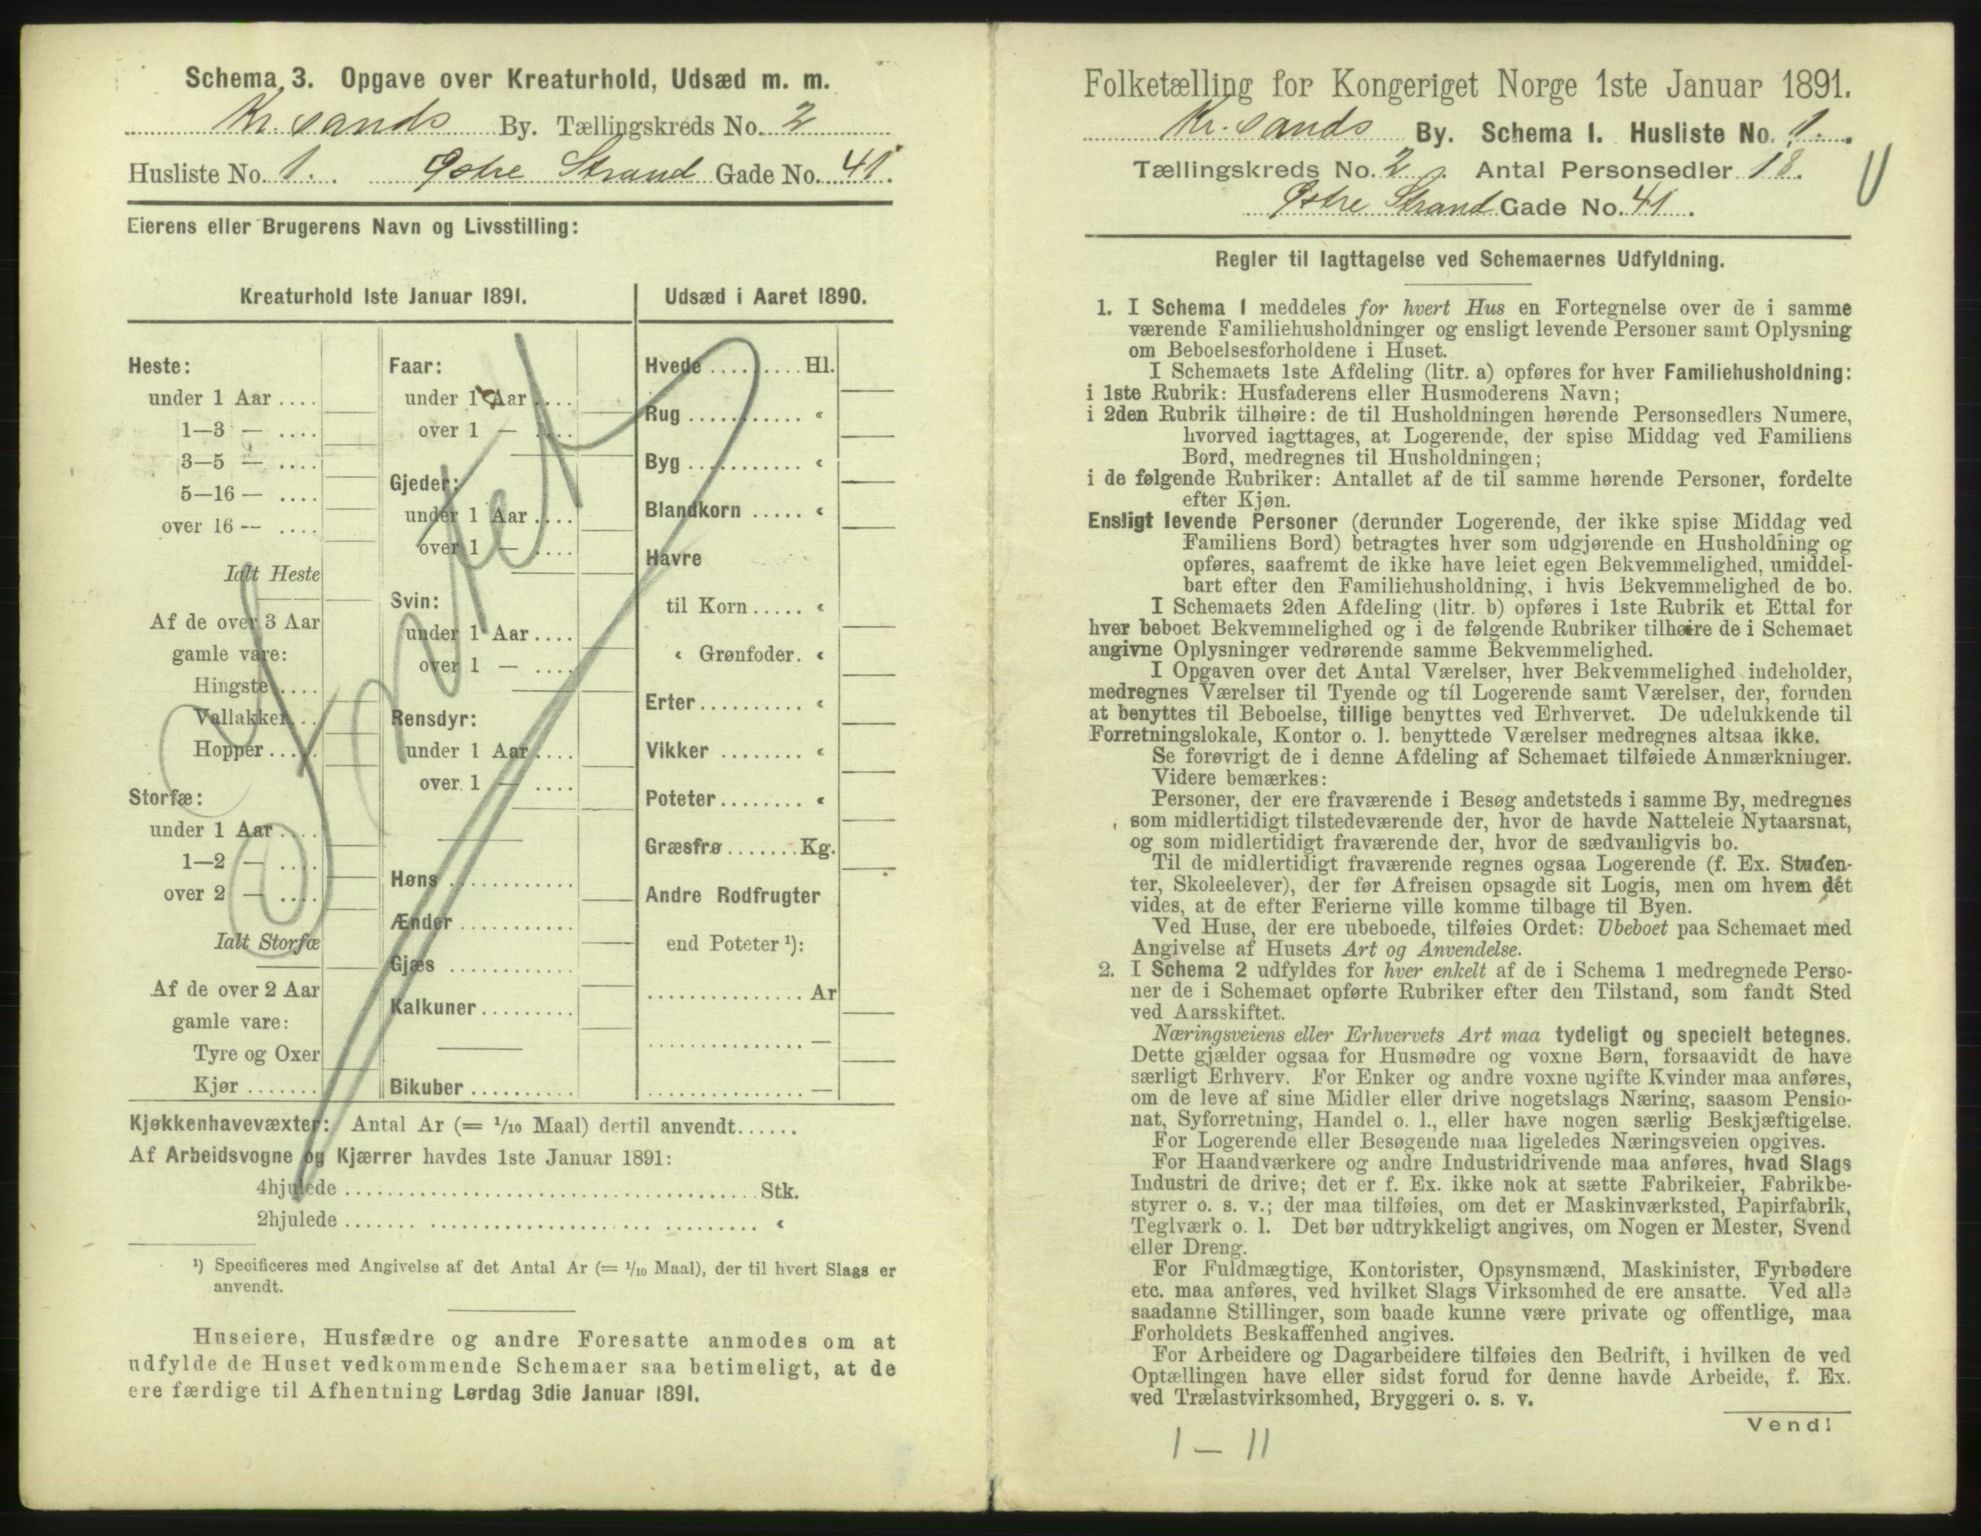 Schema 3. Opgave over Kreaturhold, Udsæd m. m.
Kr. sands By. Tællingskreds No. 2
Husliste No. 1. Østre Strand Gade No. 41.
Eierens eller Brugerens Navn og Livsstilling:
Kreaturhold 1ste Januar 1891.
Heste:
under 1 Aar ....
1—3 — ....
3—5 — ....
5—16 — ....
over 16 — ....
Ialt Heste
Af de over 3 Aar
gamle vare:
Hingste ....
Vallakker...
Hopper .....
Storfæ:
under 1 Aar ....
1—2 — ....
over 2 — ....
Ialt Storfæ
Af de over 2 Aar
gamle vare:
Tyre og Oxer
Kjør .......
Faar:
under 1 Aar ....
over 1 — ....
Gjeder:
under 1 Aar ....
over 1 — ....
Svin:
under 1 Aar ....
over 1 — ....
Rensdyr:
under 1 Aar ....
over 1 — ....
Høns ............
Ænder ...........
Gjæs ............
Kalkuner.........
Bikuber ..........
Udsæd i Aaret 1890.
Hvede ......... Hl.
Rug ........... «
Byg ........... «
Blandkorn ..... «
Havre
til Korn ..... «
« Grønfoder. «
Erter .......... «
Vikker ......... «
Poteter ........ «
Græsfrø ....... Kg.
Andre Rodfrugter
end Poteter ¹):
............... Ar
............... —
............... —
Kjøkkenhavevæxter: Antal Ar (= 1/10 Maal) dertil anvendt......
Af Arbeidsvogne og Kjærrer havdes 1ste Januar 1891:
4hjulede ....................................... Stk.
2hjulede ....................................... «
¹) Specificeres med Angivelse af det Antal Ar (= 1/10 Maal), der til hvert Slags er
anvendt.
Huseiere, Husfædre og andre Foresatte anmodes om at
udfylde de Huset vedkommende Schemaer saa betimeligt, at de
ere færdige til Afhentning Lørdag 3die Januar 1891.
Folketælling for Kongeriget Norge 1ste Januar 1891.
Kr. sands By. Schema 1. Husliste No. 1.
Tællingskreds No. 2. Antal Personsedler 18.
Østre Strand Gade No. 41.
Regler til Iagttagelse ved Schemaernes Udfyldning.
1. I Schema 1 meddeles for hvert Hus en Fortegnelse over de i samme
værende Familiehusholdninger og ensligt levende Personer samt Oplysning
om Beboelsesforholdene i Huset.
I Schemaets 1ste Afdeling (litr. a) opføres for hver Familiehusholdning:
i 1ste Rubrik: Husfaderens eller Husmoderens Navn;
i 2den Rubrik tilhøire: de til Husholdningen hørende Personsedlers Numere,
hvorved iagttages, at Logerende, der spise Middag ved Familiens
Bord, medregnes til Husholdningen;
i de følgende Rubriker: Antallet af de til samme hørende Personer, fordelte
efter Kjøn.
Ensligt levende Personer (derunder Logerende, der ikke spise Middag ved
Familiens Bord) betragtes hver som udgjørende en Husholdning og
opføres, saafremt de ikke have leiet egen Bekvemmelighed, umiddel-
bart efter den Familiehusholdning, i hvis Bekvemmelighed de bo.
I Schemaets 2den Afdeling (litr. b) opføres i 1ste Rubrik et Ettal for
hver beboet Bekvemmelighed og i de følgende Rubriker tilhøire de i Schemaet
angivne Oplysninger vedrørende samme Bekvemmelighed.
I Opgaven over det Antal Værelser, hver Bekvemmelighed indeholder,
medregnes Værelser til Tyende og til Logerende samt Værelser, der, foruden
at benyttes til Beboelse, tillige benyttes ved Erhvervet. De udelukkende til
Forretningslokale, Kontor o. l. benyttede Værelser medregnes altsaa ikke.
Se forøvrigt de i denne Afdeling af Schemaet tilføiede Anmærkninger.
Videre bemærkes:
Personer, der ere fraværende i Besøg andetsteds i samme By, medregnes
som midlertidigt tilstedeværende der, hvor de havde Natteleie Nytaarsnat,
og som midlertidigt fraværende der, hvor de sædvanligvis bo.
Til de midlertidigt fraværende regnes ogsaa Logerende (f. Ex. Studen-
ter, Skoleelever), der før Afreisen opsagde sit Logis, men om hvem det
vides, at de efter Ferierne ville komme tilbage til Byen.
Ved Huse, der ere ubeboede, tilføies Ordet: Ubeboet paa Schemaet med
Angivelse af Husets Art og Anvendelse.
2. I Schema 2 udfyldes for hver enkelt af de i Schema 1 medregnede Perso-
ner de i Schemaet opførte Rubriker efter den Tilstand, som fandt Sted
ved Aarsskiftet.
Næringsveiens eller Erhvervets Art maa tydeligt og specielt betegnes.
Dette gjælder ogsaa for Husmødre og voxne Børn, forsaavidt de have
særligt Erhverv. For Enker og andre voxne ugifte Kvinder maa anføres,
om de leve af sine Midler eller drive nogetslags Næring, saasom Pensio-
nat, Syforretning, Handel o. l., eller have nogen særlig Beskjæftigelse.
For Logerende eller Besøgende maa ligeledes Næringsveien opgives.
For Haandværkere og andre Industridrivende maa anføres, hvad Slags
Industri de drive; det er f. Ex. ikke nok at sætte Fabrikeier, Fabrikbe-
styrer o. s. v.; der maa tilføies, om det er Maskinværksted, Papirfabrik,
Teglværk o. l. Det bør udtrykkeligt angives, om Nogen er Mester, Svend
eller Dreng.
For Fuldmægtige, Kontorister, Opsynsmænd, Maskinister, Fyrbødere
etc. maa anføres, ved hvilket Slags Virksomhed de ere ansatte. Ved alle
saadanne Stillinger, som baade kunne være private og offentlige, maa
Forholdets Beskaffenhed angives.
For Arbeidere og Dagarbeidere tilføies den Bedrift, i hvilken de ved
Optællingen have eller sidst forud for denne havde Arbeide, f. Ex.
ved Trælastvirksomhed, Bryggeri o. s. v.
Vend!
1 — 11